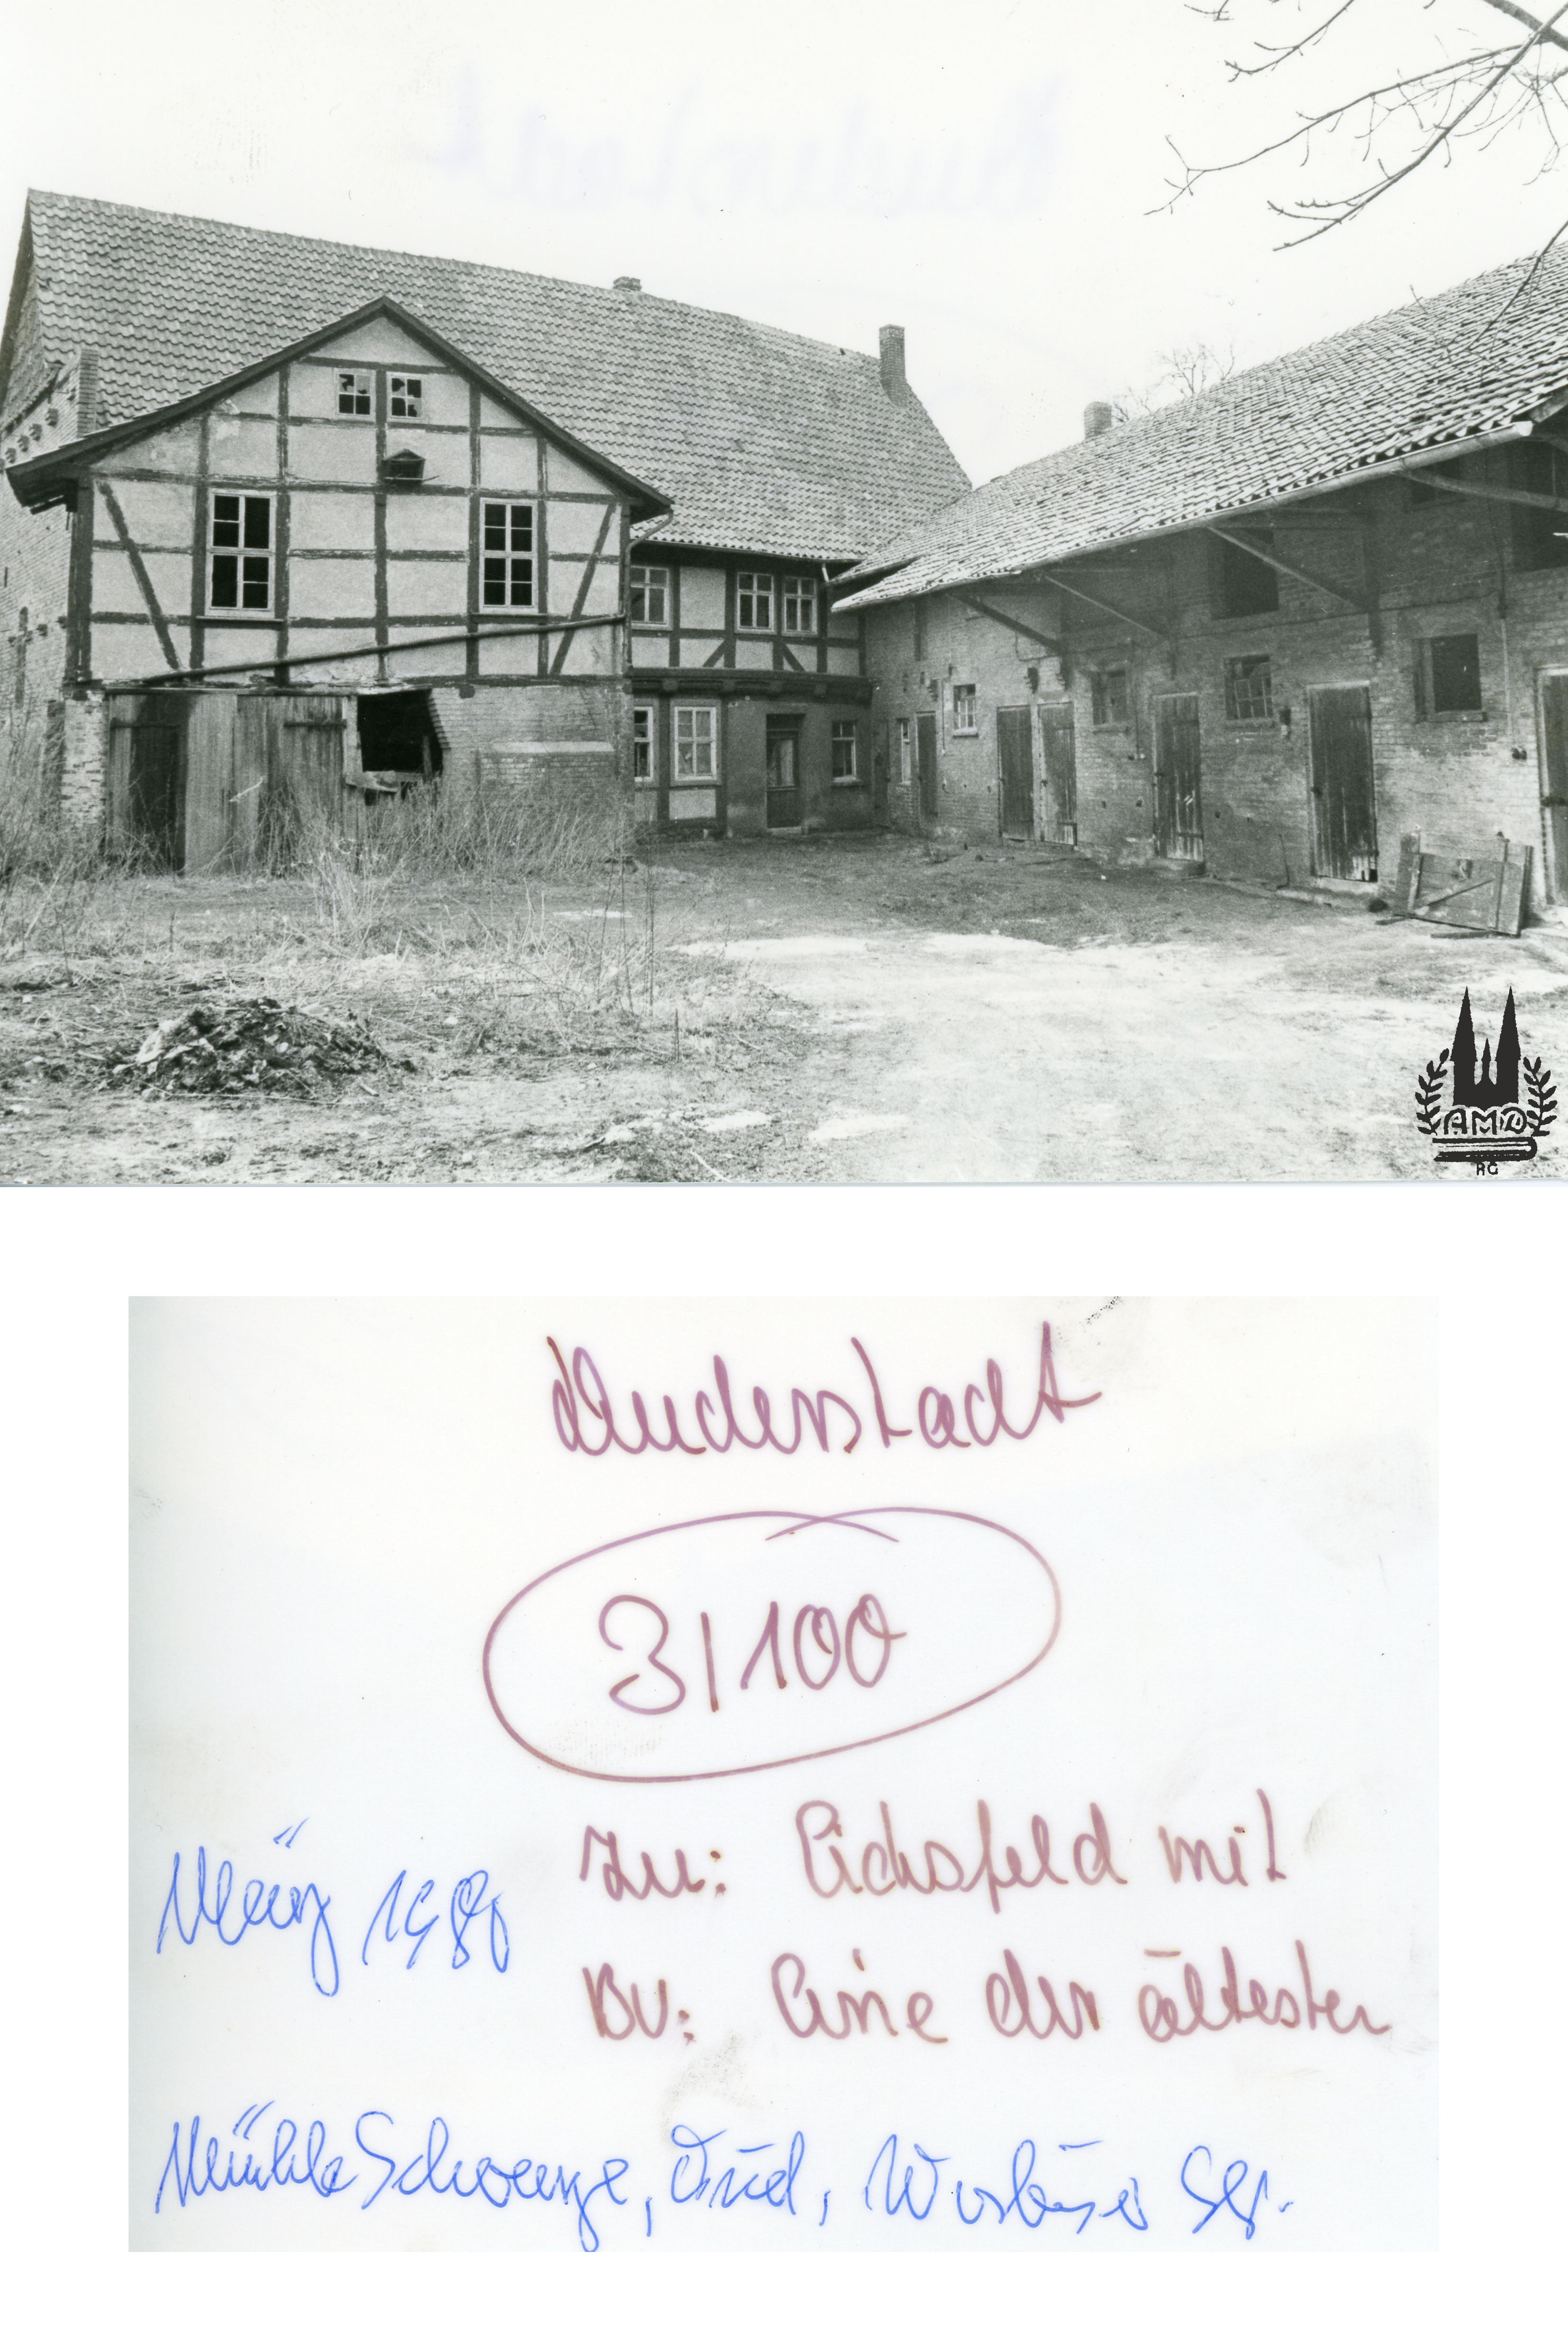 AMD
RG
Duderstadt
3/100
Zu: Eichsfeld mit
März
BU: Eine der ältesten
Mühle Schwarze, Dud,